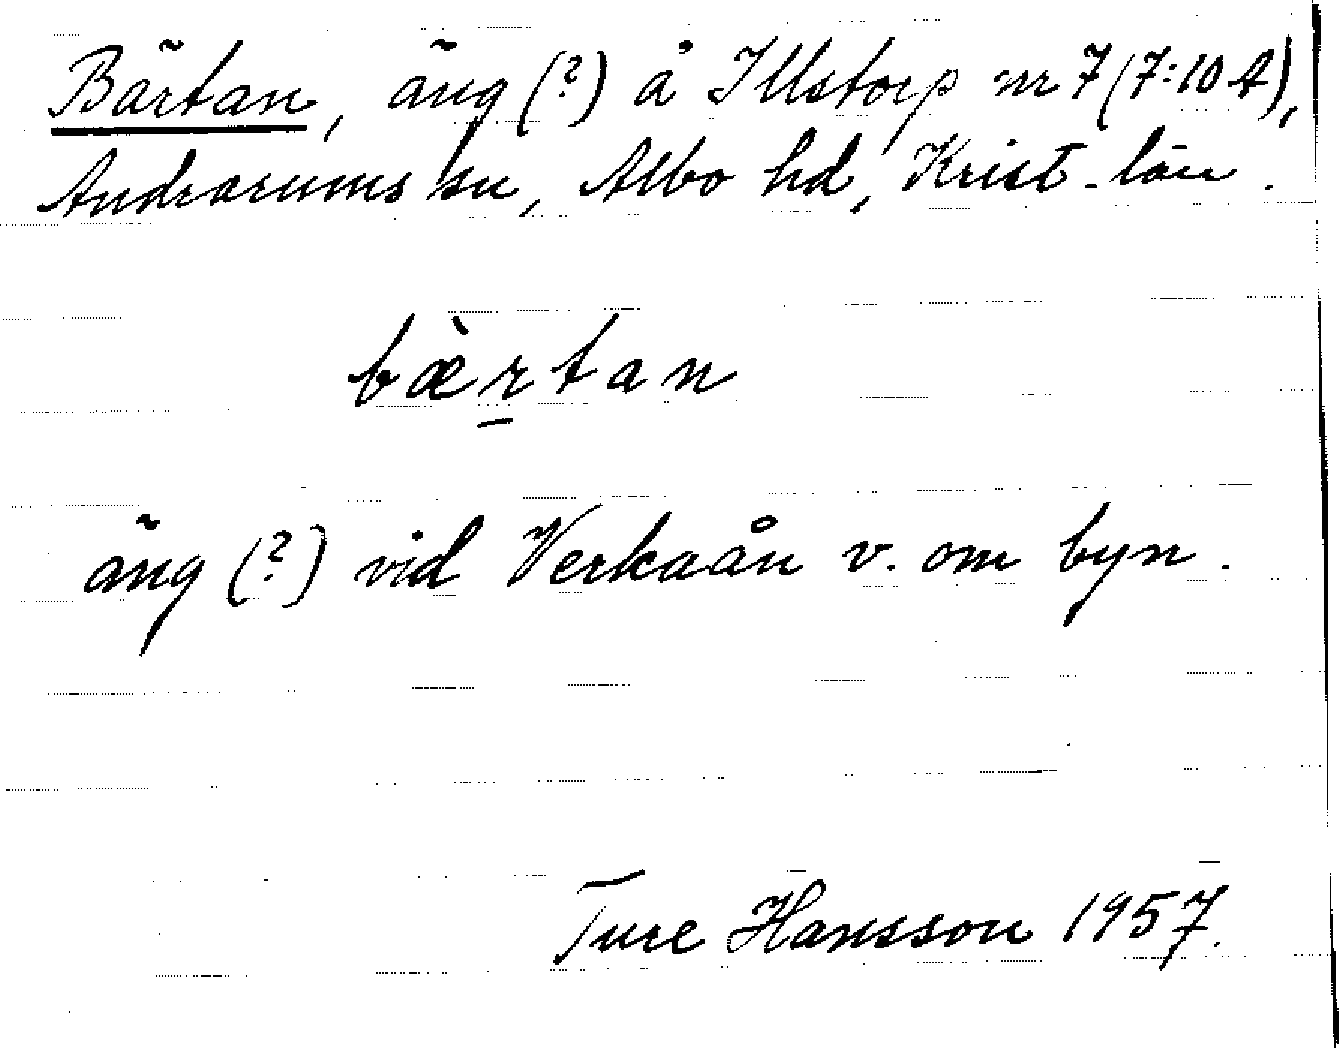 Bärtan, äng (?) å Illstorp nr 7 (7:10 A),
Andrarums sn, Albo hd, Krist. län.
bæ̀r̠tan
äng (?) vid Verkaån v. om byn.
Ture Hansson 1957.